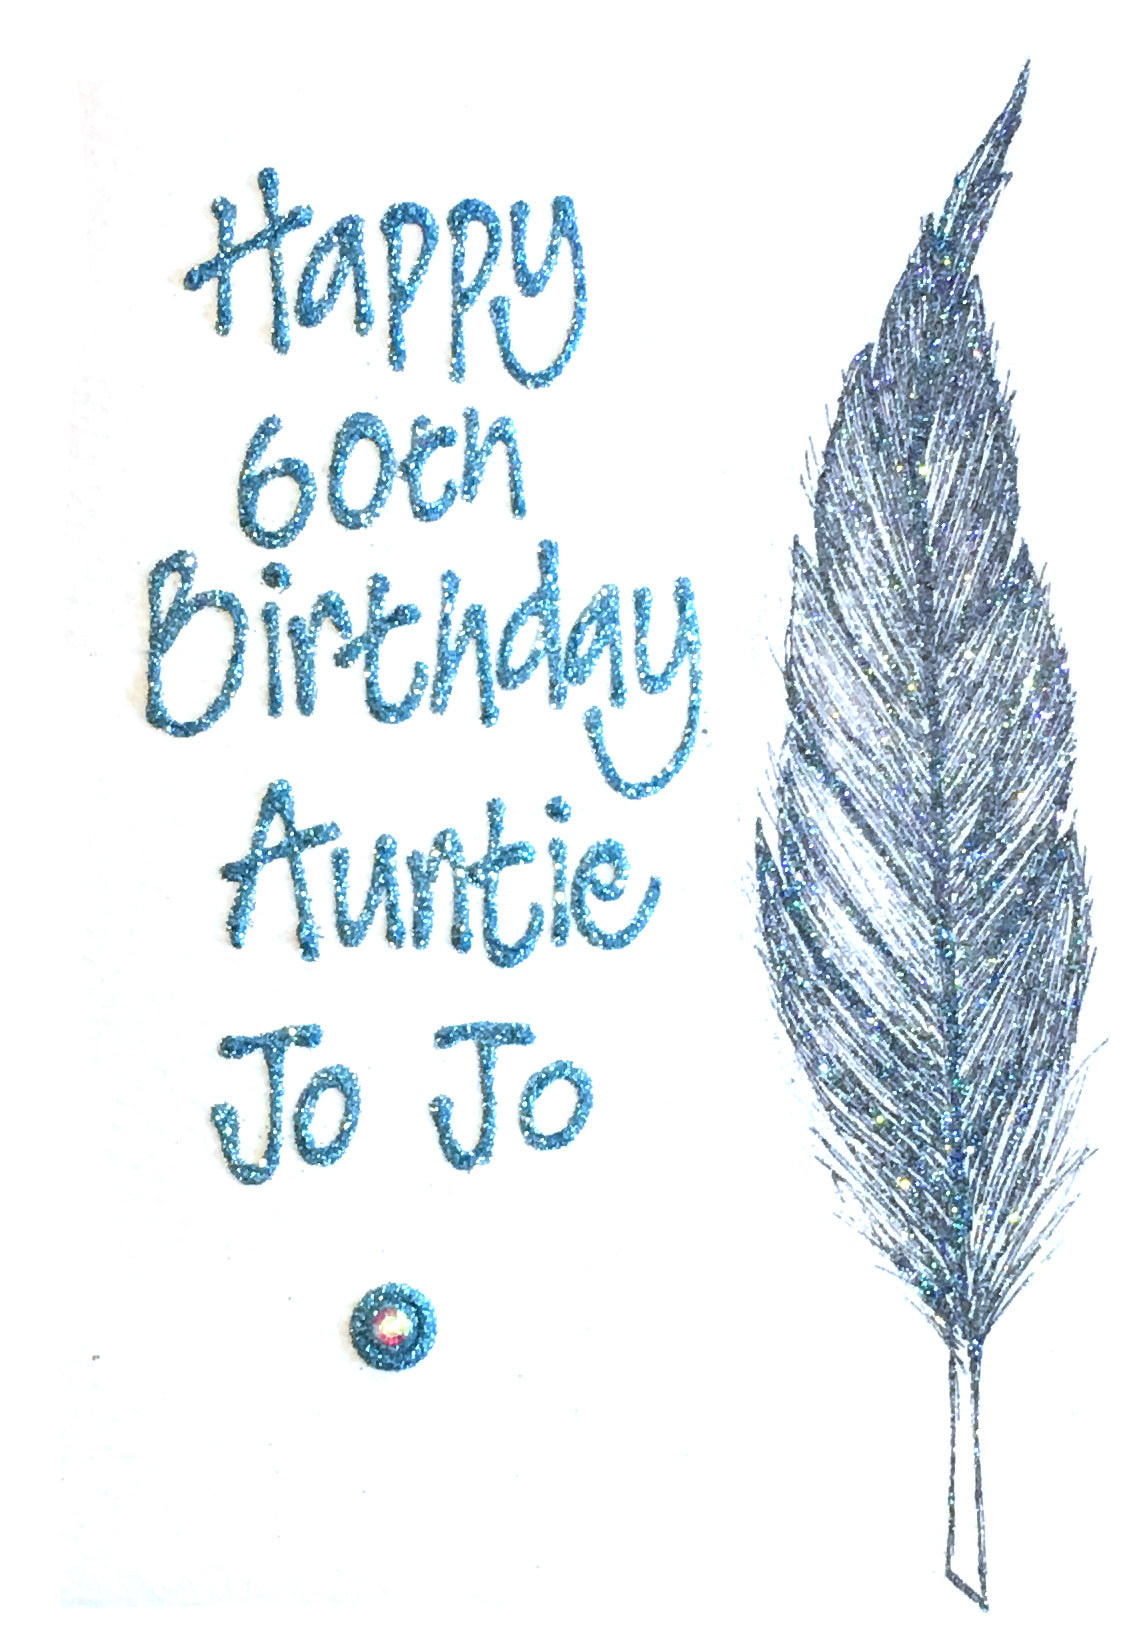 Happy
60th
Birthday
Auntie
Jo Jo